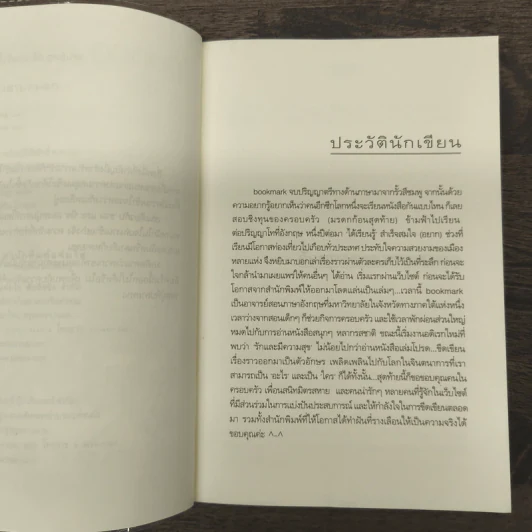 ประวัตินักเขียน
bookmark จบปริญญาตรีทางด้านภาษามาจากรั้วสีชมพู จากนั้นด้วย
ความอยากรู้อยากเห็นว่าคนอีกซีกโลกหนึ่งจะเรียนหนังสือกันแบบไหน ก็เลย
สอบชิงทุนของครอบครัว (มรดกก้อนสุดท้าย) ข้ามฟ้าไปเรียน
ต่อปริญญาโทที่อังกฤษ หนึ่งปีต่อมา ได้เรียนรู้ สำเร็จสมใจ (อยาก) ช่วงที่
เรียนมีโอกาสท่องเที่ยวไปเกือบทั่วประเทศ ประทับใจความสวยงามของเมือง
หลายแห่ง จึงหยิบมาบอกเล่าเรื่องราวผ่านตัวละครเก็บไว้เป็นที่ระลึก ก่อนจะ
ใจกล้านำมาเผยแพร่ให้คนอื่นๆ ได้อ่าน เริ่มแรกผ่านเว็บไซต์ ก่อนจะได้รับ
โอกาสจากสำนักพิมพ์ให้ออกมาโลดแล่นเป็นเล่มๆ...เวลานี้ bookmark
เป็นอาจารย์สอนภาษาอังกฤษที่มหาวิทยาลัยในจังหวัดทางภาคใต้แห่งหนึ่ง
เวลาว่างจากสอนเด็กๆ ก็ช่วยกิจการครอบครัว และใช้เวลาพักผ่อนส่วนใหญ่
หมดไปกับการอ่านหนังสือสนุกๆ หลากรสชาติ ขณะนี้เริ่มงานอดิเรกใหม่ที่
พบว่า รักและมีความสุข ไม่น้อยไปกว่าอ่านหนังสือเล่มโปรด...ขีดเขียน
เรื่องราวออกมาเป็นตัวอักษร เพลิดเพลินไปกับโลกในจินตนาการที่เรา
สามารถเป็น 'อะไร' และเป็น 'ใคร' ก็ได้ทั้งนั้น...สุดท้ายนี้ก็ขอขอบคุณคนใน
ครอบครัว เพื่อนสนิทมิตรสหาย และคนน่ารักๆ หลายคนที่รู้จักในเว็บไซต์
ที่มีส่วนร่วมในการแบ่งปันประสบการณ์ และให้กำลังใจในการขีดเขียนตลอด
มา รวมทั้งสำนักพิมพ์ที่ให้โอกาสได้ทำฝันที่รางเลือนให้เป็นความจริงได้
ขอบคุณค่ะ ^-^